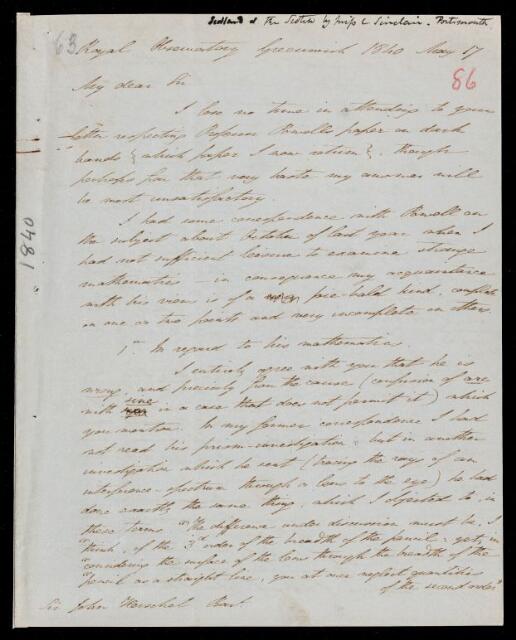 Scotland & the Scotch by Miss C Sinclair. Portsmouth
63
Royal Observatory Greenwich 1840 May 17
86
My dear Sir
I lose no time in attending to your
letter respecting Professor Powell's paper on dark
bands {which paper I now return}, though
perhaps from that very haste my answer will
be most unsatisfactory.
I had some correspondence with Powell on
the subject about October of last year when I
had not sufficient leisure to examine strange
mathematics – in consequence my acquaintance
with his views is of a pie-bald kind, complete
on one or two points and very incomplete in others.
1st In regard to his mathematics.
I entirely agree with you that he is
wrong, and precisely from the cause (confusion of arc
with sine in a case that does not permit it) which
you mention. In my former correspondence I had
not read his prism-investigation: but in another
investigation which he sent (tracing the rays of an
interference-spectrum through a lens to the eye) he had
done exactly the same thing, which I objected to in
these terms "The difference under discussion must be, I
"think, of the 3d order of the breadth of the pencil: yet, in
"considering the surface of the lens through the breadth of the
"pencil as a straight line, you at once neglect quantities
of the second order"
Sir John Herschel Bart.
1840